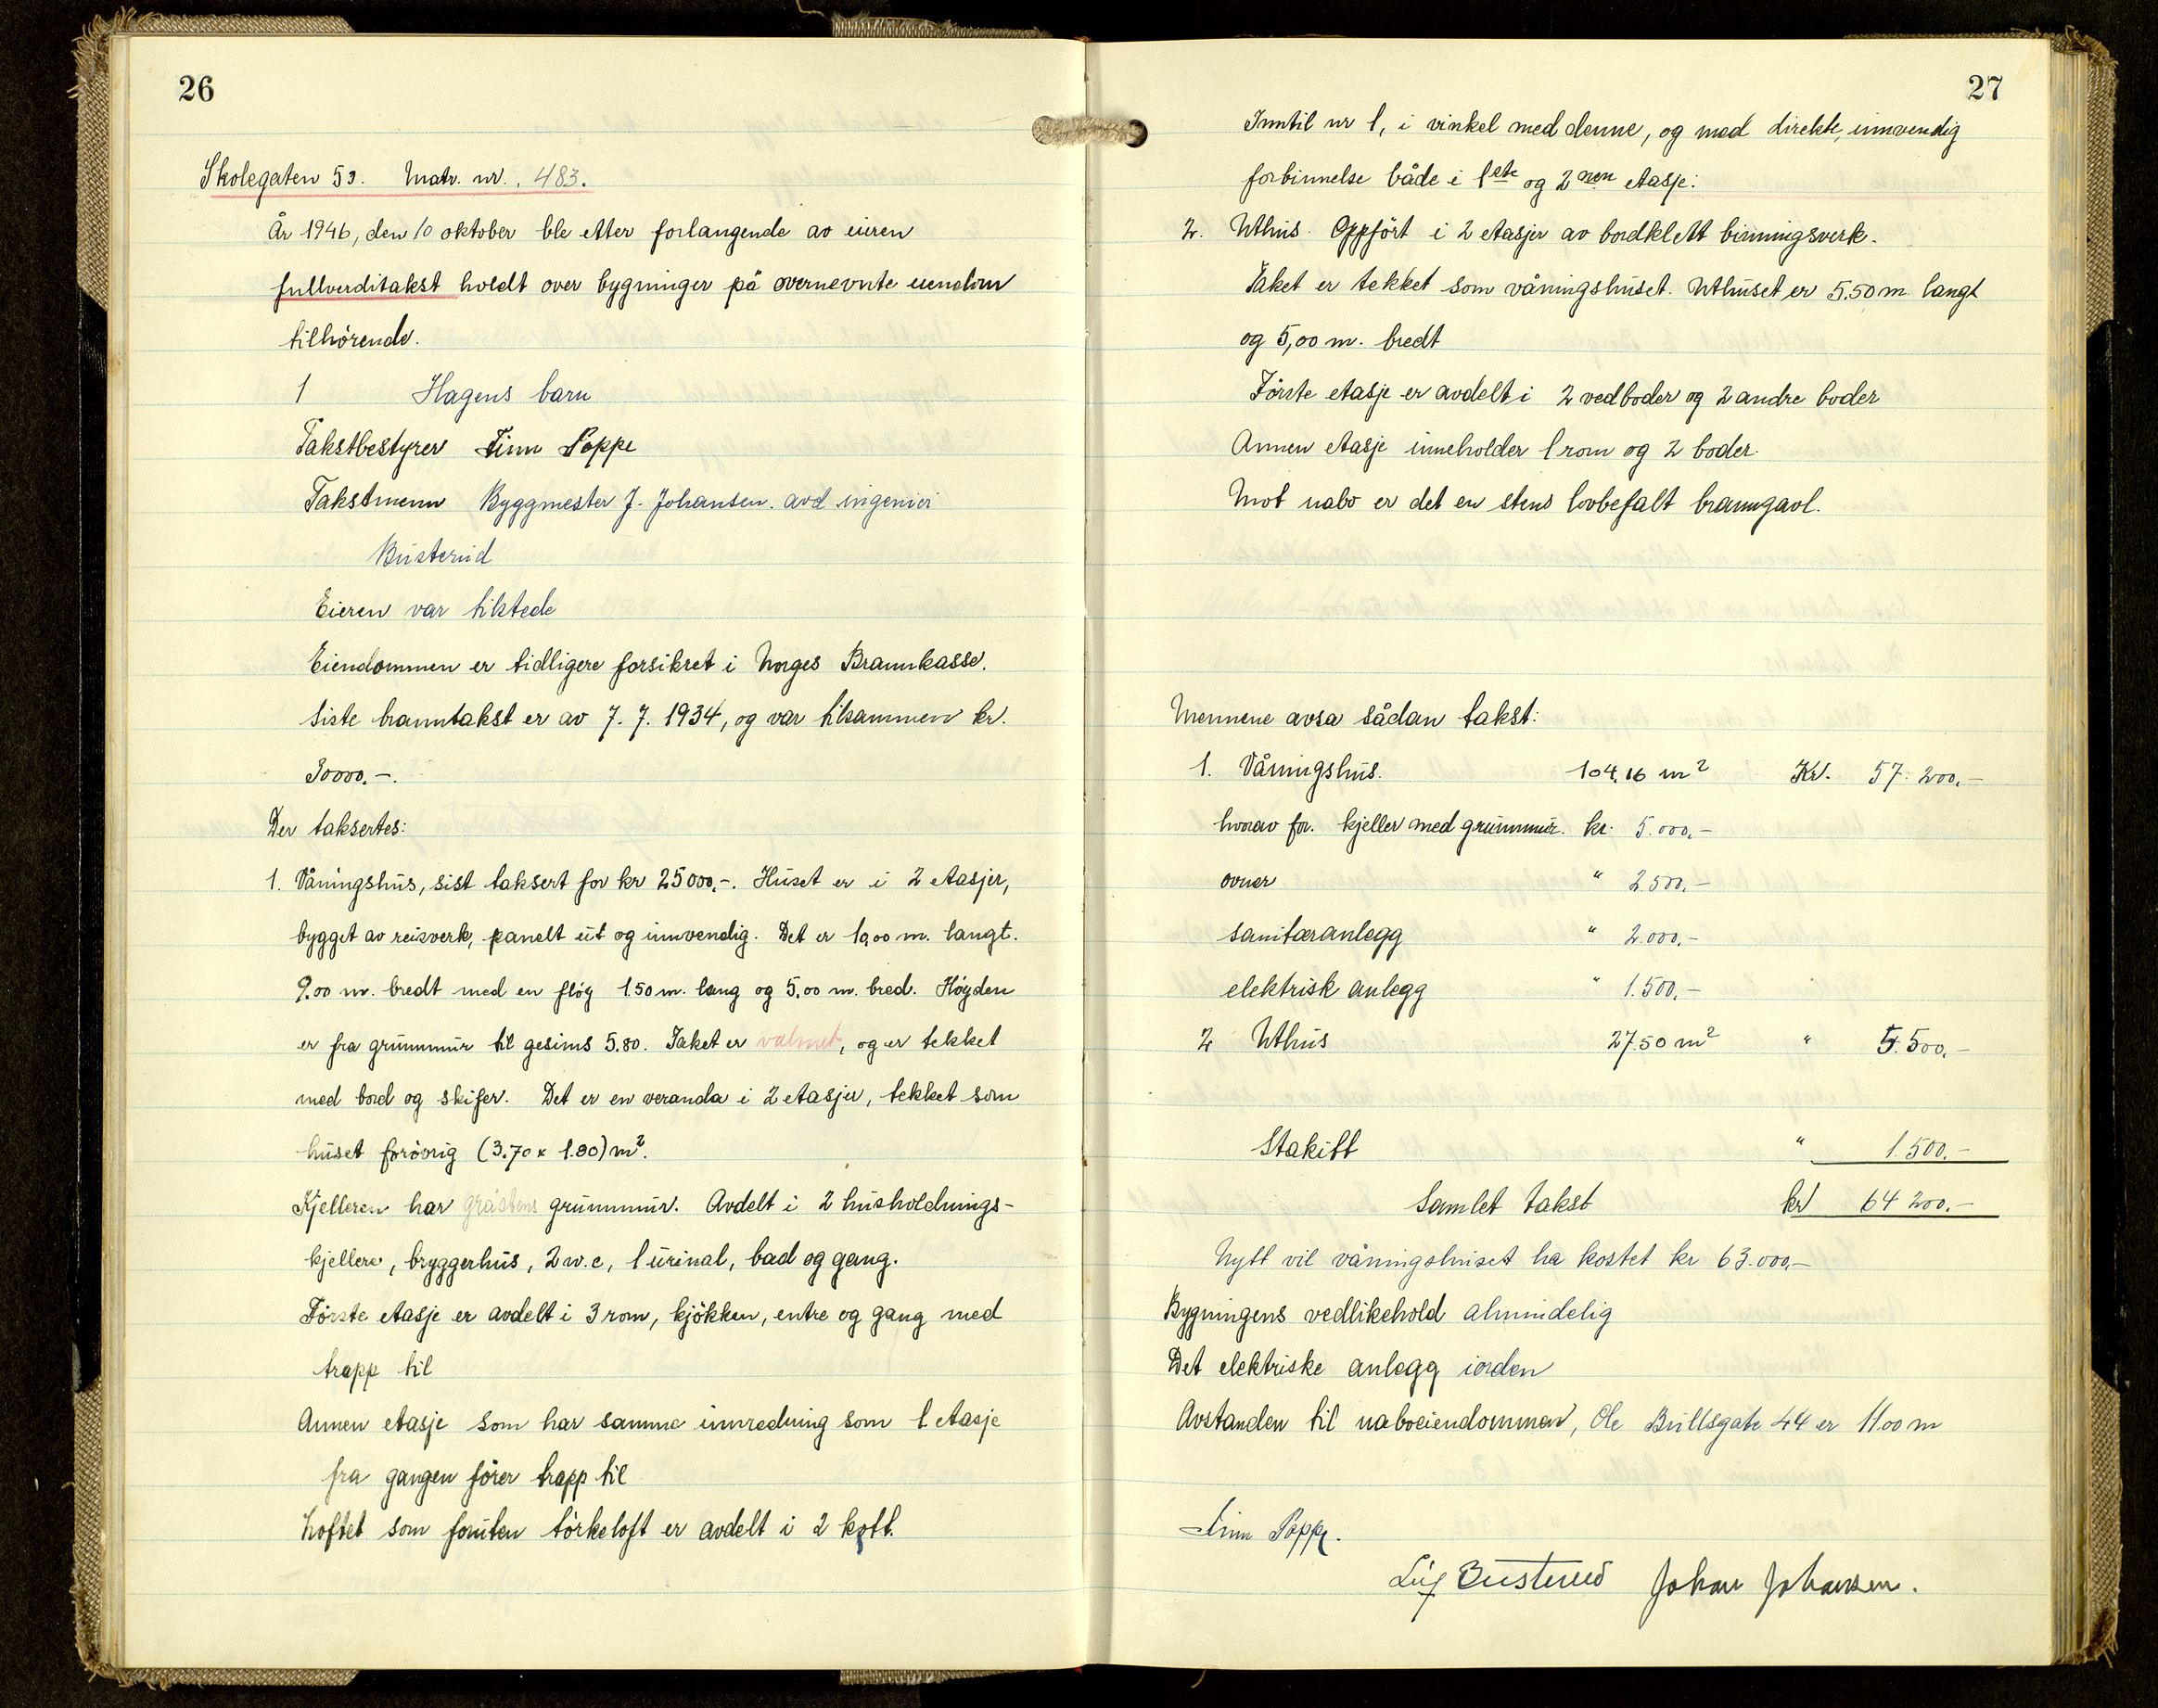 26
Skolegaten 53. Matr. nr. 483.
År 1946, den 10 oktober ble etter forlangende av eieren
fullverditakst holdt over bygninger på overnevnte eiendom
tilhörende.
1 Hagens barn
Takstbestyrer Finn Poppe
Takstmenn Byggmester J. Johansen. avd ingeniör
Busterud
Eieren var tilstede
Eiendommen er tidligere forsikret i Norges Brannkasse.
Siste branntakst er av 7. 7. 1934, og var tilsammen kr.
30000.-.
Der taksertes:
1. Våningshus, sist taksert for kr 25000,-. Huset er i 2 etasjer,
bygget av reisverk, panelt ut og innvendig. Det er 10,00 m. langt.
9.00 m. bredt med en flöy 1.50 m. lang og 5,00 m. bred. Höyden
er fra grunnmur til gesims 5.80. Taket er valmet, og er tekket
med bord og skifer. Det er en veranda i 2 etasjer, tekket som
huset forövrig (3.70 x 1.80) m².
Kjelleren har gråstens grunnmur. Avdelt i 2 husholdnings-
kjellere, bryggerhus, 2 w.c, 1 urinal, bad og gang.
Förste etasje er avdelt i 3 rom, kjökken, entre og gang med
trapp til
Annen etasje som har samme innredning som 1 etasje
fra gangen förer trapp til
Loftet som foruten törkeloft er avdelt i 2 kott.
27
Inntil nr 1, i vinkel med denne, og med direkte, innvendig
forbinnelse både i 1ste og 2nen etasje:
2. Uthus. Oppfört i 2 etasjer av bordklett binningsverk.
Taket er tekket som våningshuset. Uthuset er 5.50 m langt
og 5,00 m. bredt
Förste etasje er avdelt i 2 vedboder og 2 andre boder
Annen etasje inneholder 1 rom og 2 boder.
Mot nabo er det en stens lovbefalt branngavl.
Mennene avsa sådan takst:
1. Våningshus. 104.16 m² Kr. 57.200.-
hvorav for. kjeller med grunnmur. kr. 5.000,-
ovner " 2.500,-
sanitæranlegg " 2.000,-
elektrisk anlegg " 1.500,-
2 Uthus 27.50 m² " 5.500,-
Stakitt " 1.500.-
Samlet takst kr 64 200.-
Nytt vil våningshuset ha kostet kr 63.000,-
Bygningens vedlikehold almindelig
Det elektriske anlegg iorden
Avstanden til naboeiendommen, Ole Bullsgate 44 er 11.00 m
Finn Poppe.
Leif Busterud Johan Johansen.